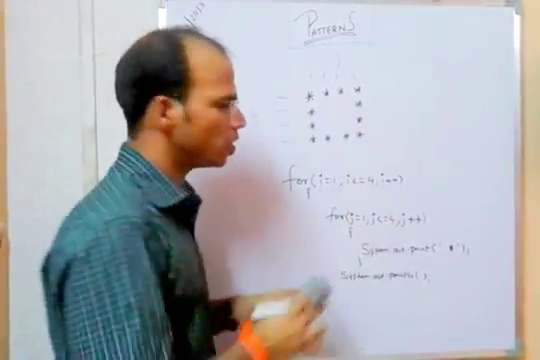 PATTERNS
* * * *
* *
* *
* * * *
for(i=1, i<=4, i++)
{
for(j=1, j<=4, j++)
{
System.out.print(" * ");
}
System.out.println( );